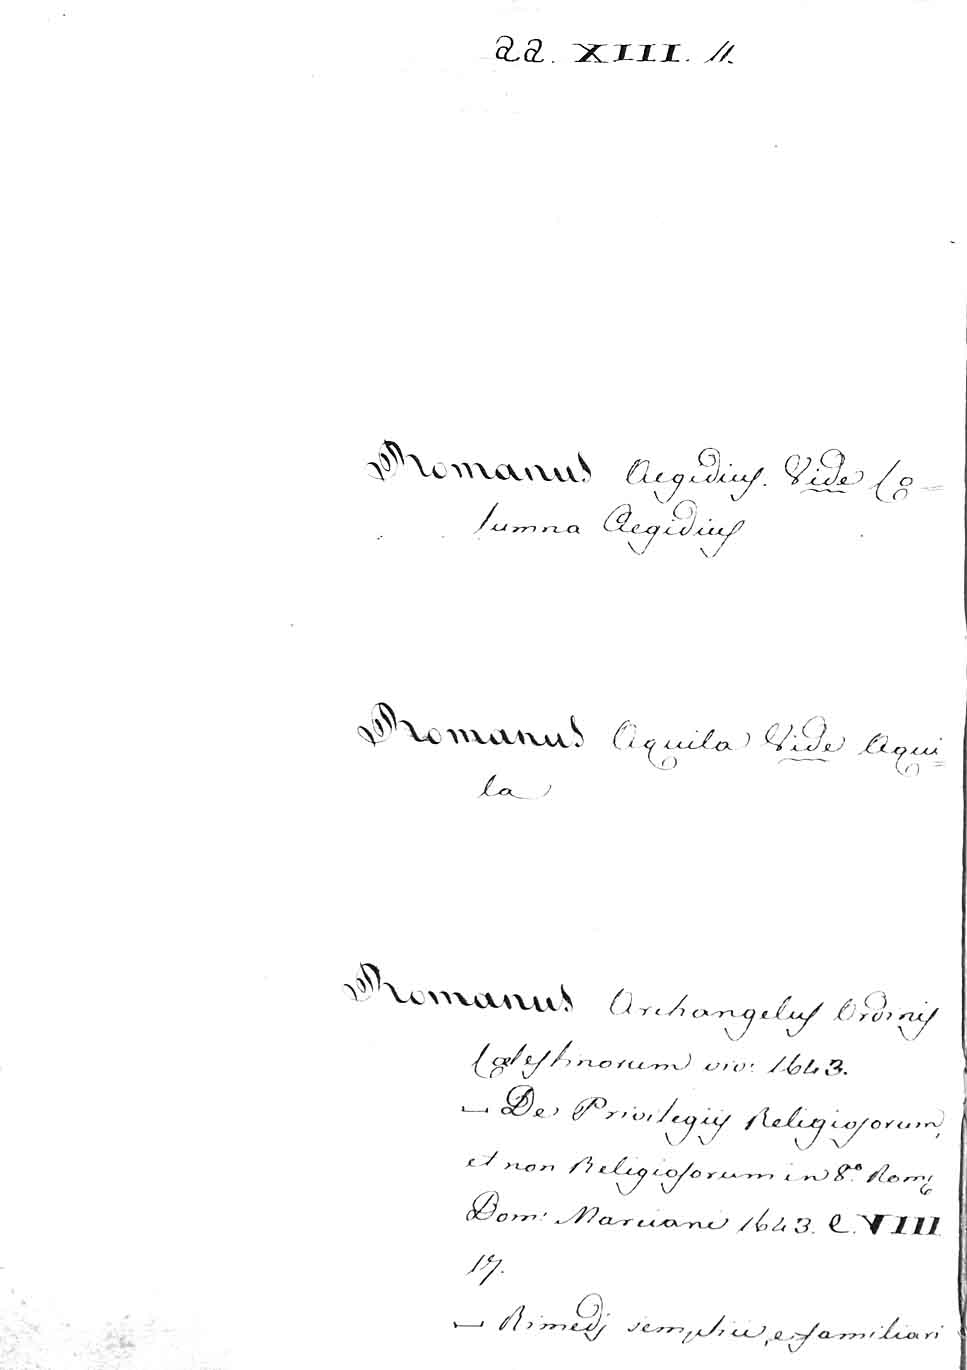 aa. XIII. 11.
Romanus Aegidius. Vide Co=
lumna Aegidius
Romanus Aquila Vide Aqui=
la
Romanus Archangelus Ordinis
Cœlestinorum viv: 1643.
– De Privilegiis Religiosorum,
et non Religiosorum in 8.º Romę
Dom: Marciani 1643. e. VIII
17.
– Rimedj semplici, e familiari